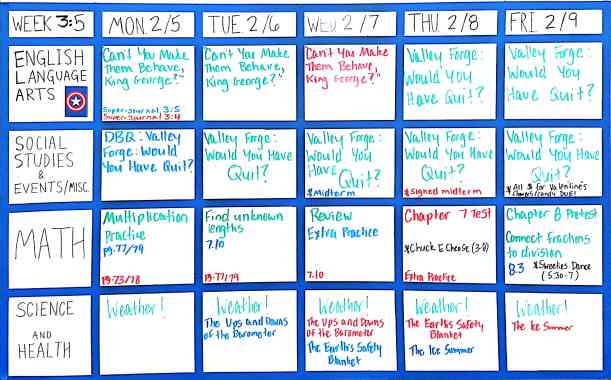 WEEK 3:5
MON 2/5
TUE 2/6
WED 2/7
THU 2/8
FRI 2/9
ENGLISH
LANGUAGE
ARTS
Can't You Make
Them Behave,
King George?"
Super-Journal 3:5
Super-Journal 3:4
Can't You Make
Them Behave,
King George?"
Can't You Make
Them Behave,
King George?"
Valley Forge:
Would You
Have Quit?
Valley Forge:
Would You
Have Quit?
SOCIAL
STUDIES
&
EVENTS/MISC.
DBQ: Valley
Forge: Would
You Have Quit?
Valley Forge:
Would You Have
Quit?
Valley Forge:
Would You
Have Quit?
*Midterm
Valley Forge:
Would You Have
Quit?
*Signed midterm
Valley Forge:
Would You Have
Quit?
*All $ for Valentine's
DUE!
MATH
Multiplication
Practice
p.77/79
p.73/78
Find unknown
lengths
7.10
p.77/79
Review
Extra Practice
7.10
Chapter 7 Test
*Chuck E Cheese (3-8)
Extra Practice
Chapter 8 Pretest
Connect fractions
to division
8.3 *Sweeties Dance
(5:30-7)
SCIENCE
AND
HEALTH
Weather!
Weather!
The Ups and Downs
of the Barometer
Weather!
The Ups and Downs
of the Barometer
The Earth's Safety
Blanket
Weather!
The Earth's Safety
Blanket
The Ice Summer
Weather!
The Ice Summer